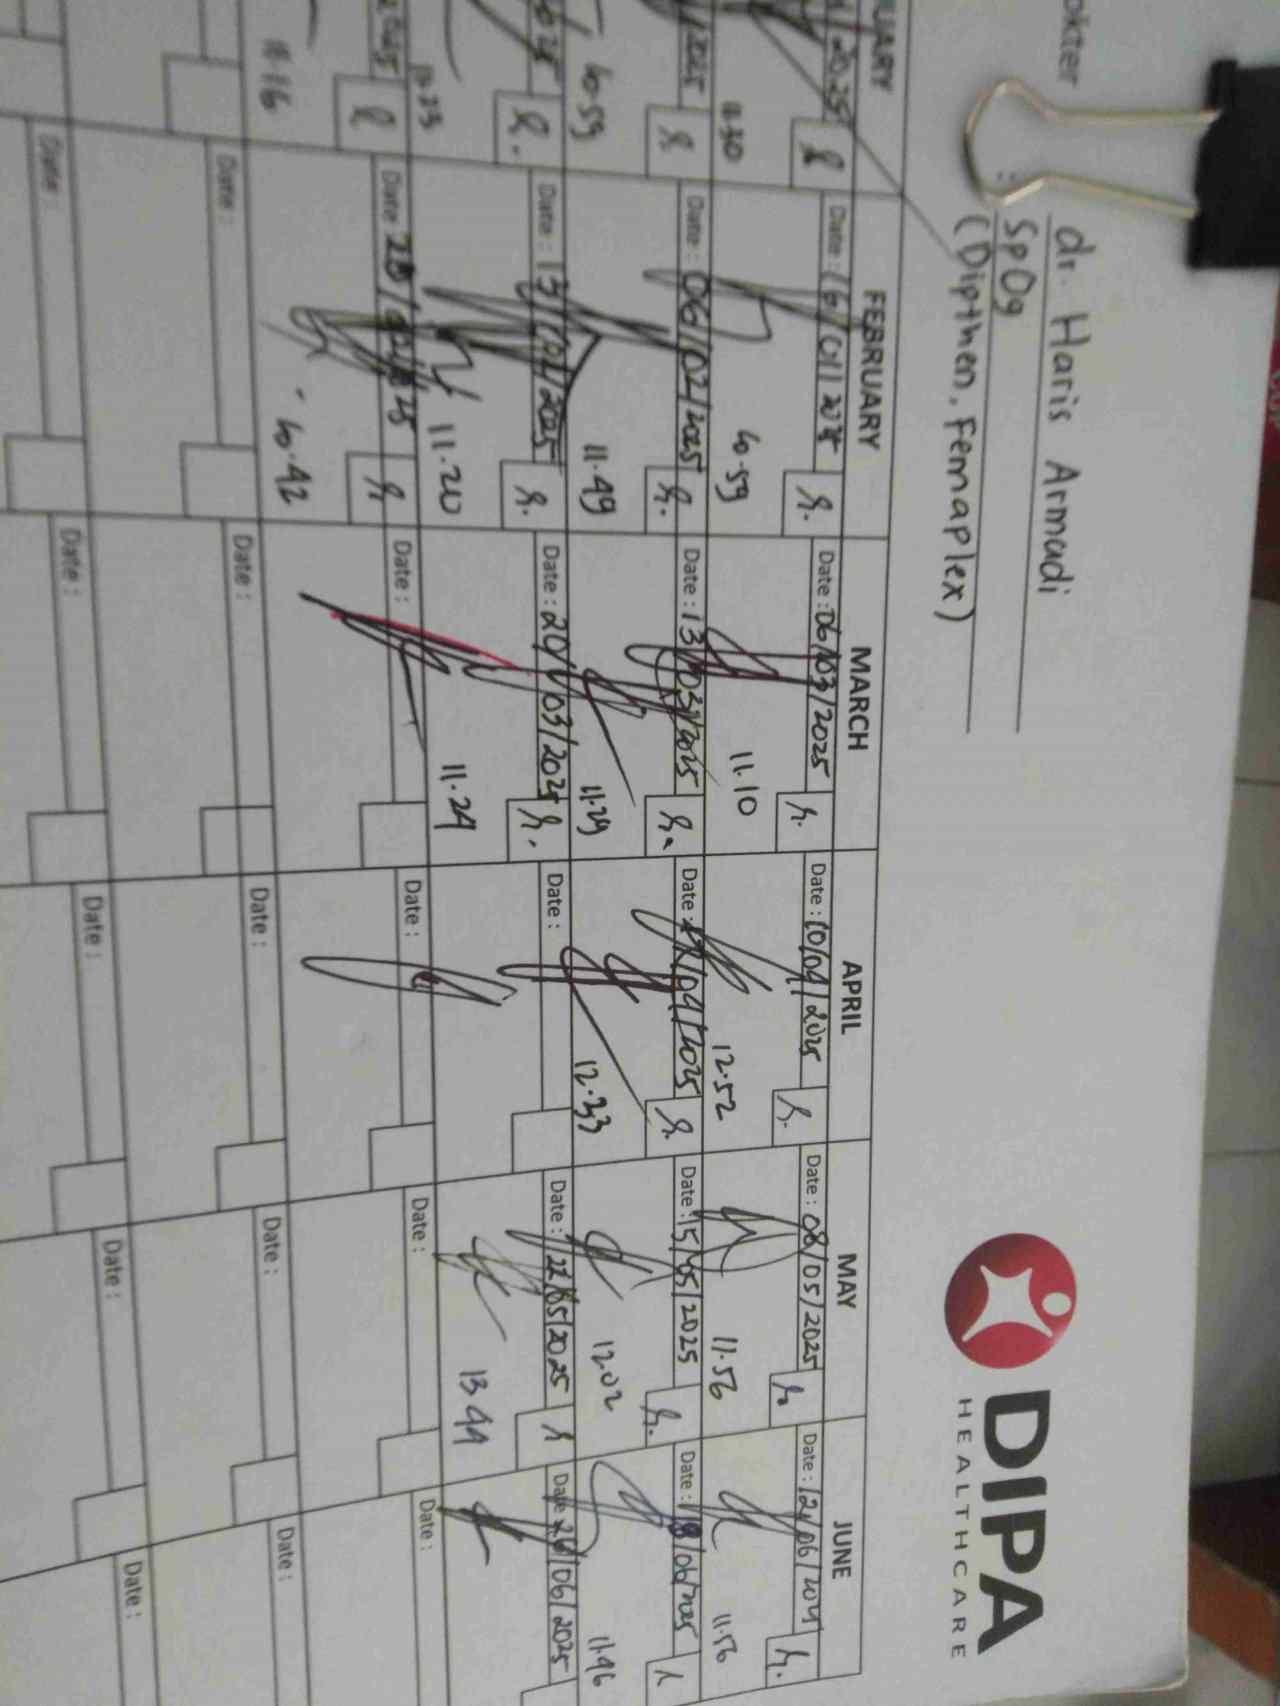 okter
: dr. Haris Armadi
SpOg
(Dipthen, Femaplex)
DIPA
HEALTHCARE
UARY FEBRUARY MARCH APRIL MAY JUNE
Date: Date: 06/03/2025 Date: 10/04/2025 Date: 08/05/2025 Date: 12/06/
11.30 10.59 11.10 12.52 11.56 11.56
Date: 06/02/2025 Date: 13/03/2025 Date: /04/2025 Date: 15/05/2025 Date: 18/06/2025
10.59 11.49 11.29 12.33 12.02 11.46
Date: 13/02/2025 Date: 20/03/2025 Date: Date: 22/05/2025 Date: 26/06/2025
11.20 11.24 13.44
Date: Date: Date: Date: Date:
11.16 10.42
Date: Date: Date: Date: Date:
Date: Date: Date: Date: Date: